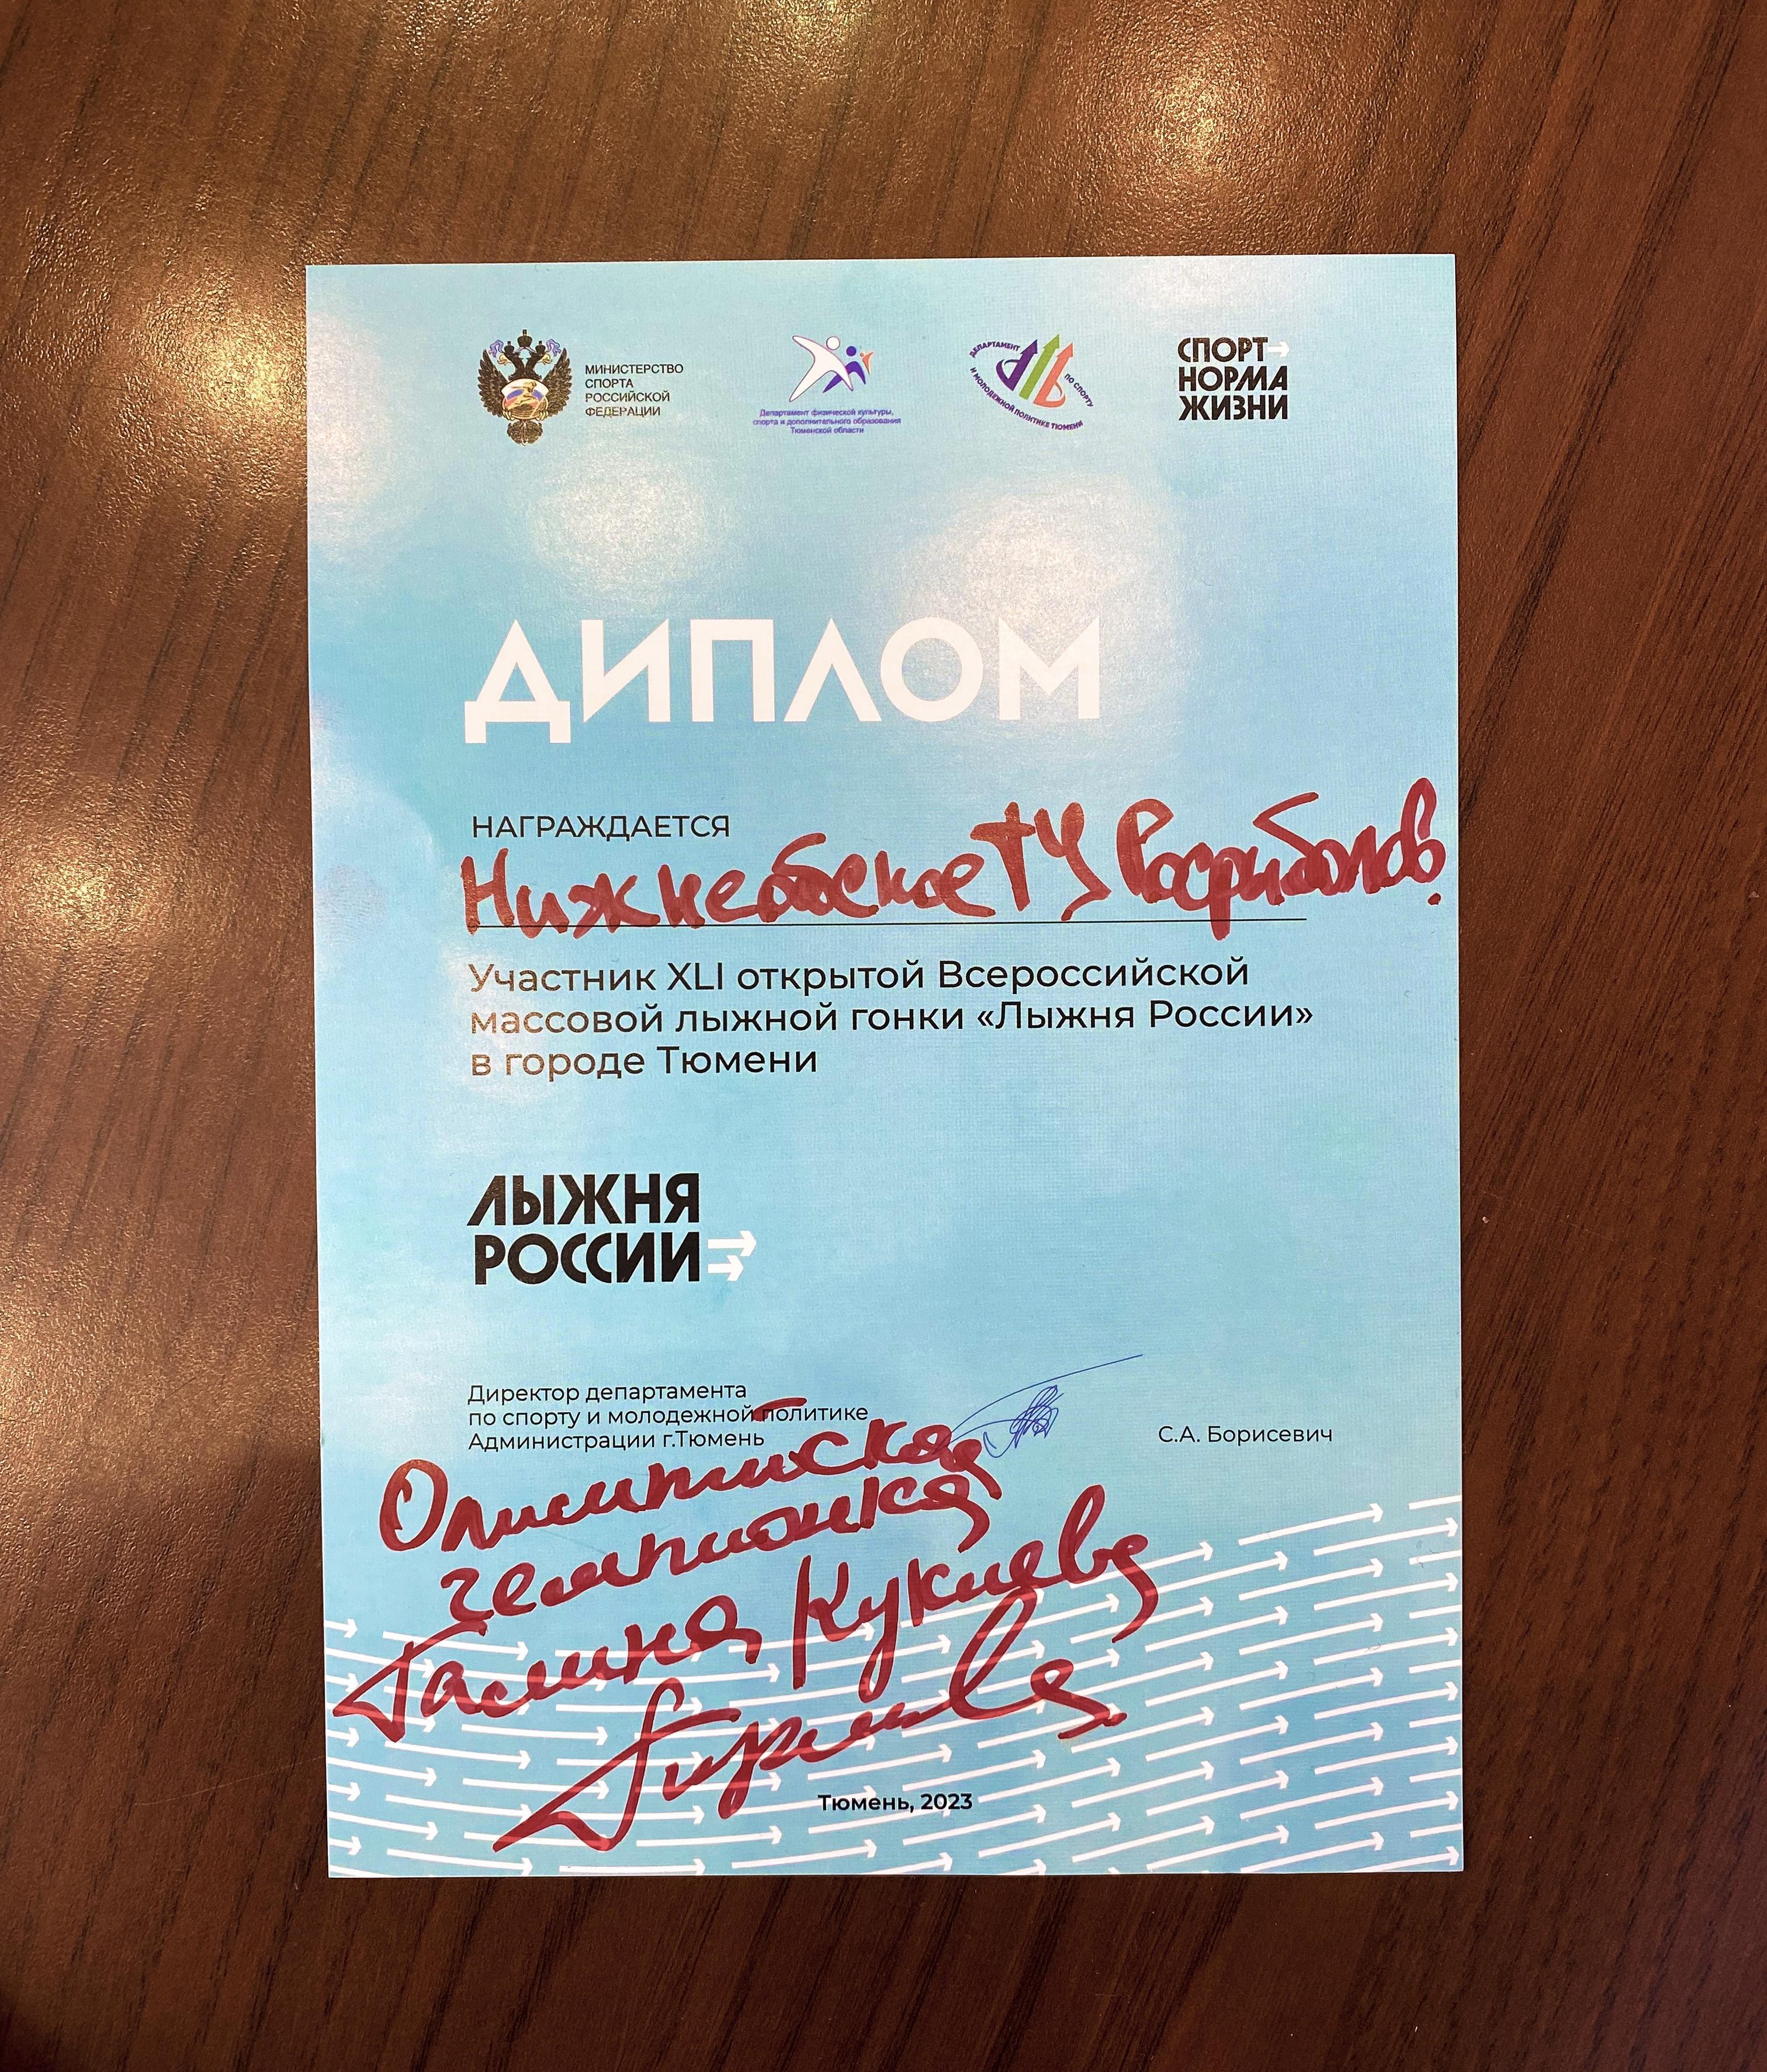 МИНИСТЕРСТВО
СПОРТА
РОССИЙСКОЙ
ФЕДЕРАЦИИ
Департамент физической культуры,
спорта и дополнительного образования
Тюменской области
ДЕПАРТАМЕНТ ПО СПОРТУ
И МОЛОДЕЖНОЙ ПОЛИТИКЕ ТЮМЕНИ
СПОРТ
НОРМА
ЖИЗНИ
ДИПЛОМ
НАГРАЖДАЕТСЯ
Нижнеобское ТУ Росрыболов.
Участник XLI открытой Всероссийской
массовой лыжной гонки «Лыжня России»
в городе Тюмени
ЛЫЖНЯ
РОССИИ
Директор департамента
по спорту и молодежной политике
Администрации г.Тюмень
С.А. Борисевич
Олимпийская
чемпионка
Галина Куклева
Тюмень, 2023